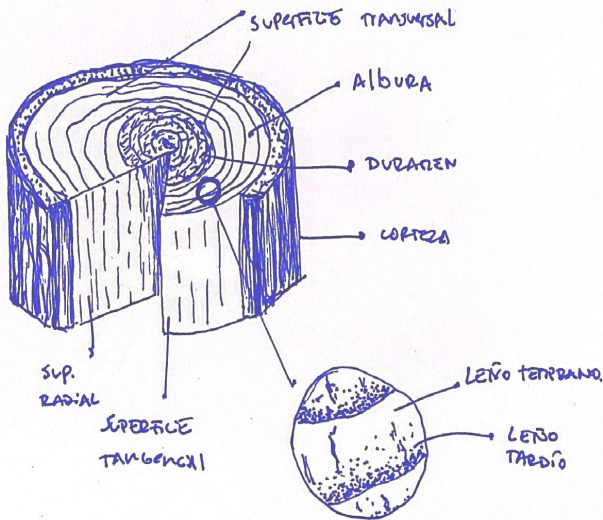 SUPERFICIE TRANSVERSAL
ALBURA
DURAMEN
CORTEZA
SUP.
RADIAL
SUPERFICIE
TANGENCIAL
LEÑO TEMPRANO.
LEÑO
TARDÍO